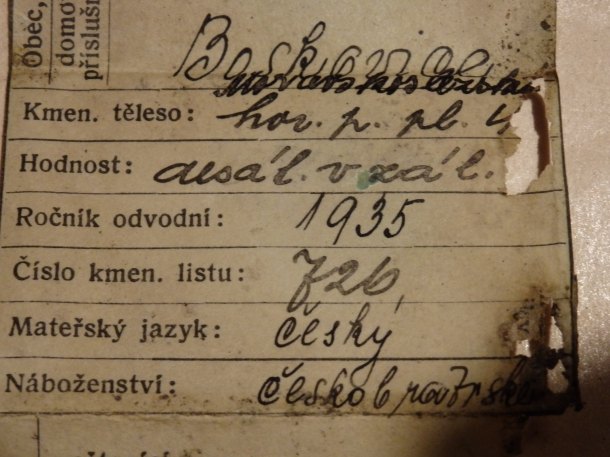 Obec,
domov
přísluš
Kmen. těleso: hor. p. pl. 4
Hodnost: desát. v zál.
Ročník odvodní: 1935
Číslo kmen. listu: 726
Mateřský jazyk: český
Náboženství: českobratrské